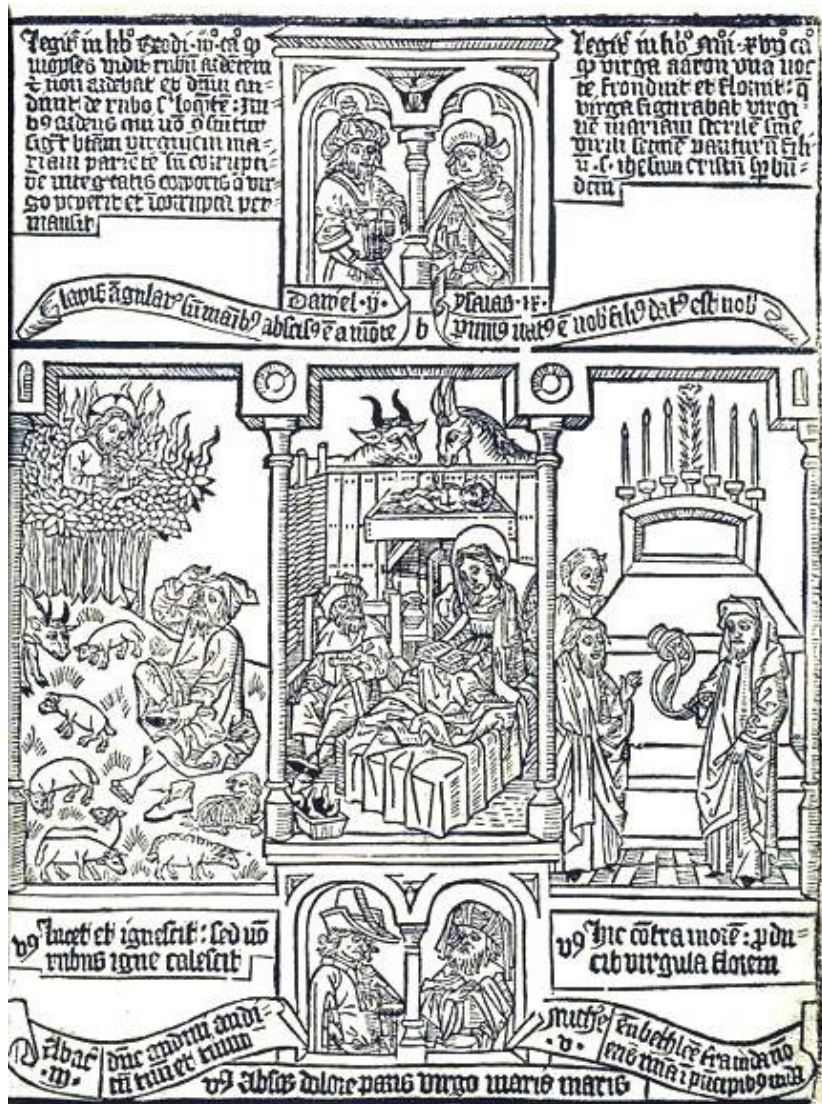 Legit̄ in lib̄o Exodi · iij · ca̅ q̅
moyses vidit rubū ardentem
& non ardebat et dn̄m au-
diuit de rubo
sig̅t btām virginem ma-
riam pariētē sn̄ corrupti-
go peperit et īcorrupta per-
mansit
Legit̄ in lib̄o Nūi · xvij ca̅
q̅ virga aaron vna noc
te fronduit et floruit : q̅
virga figurabat virgi
nē mariam sterilē sine
virili semīe pariturā fili
ū · s · ihesum cristū sp̄ bn̄-
dcm̄
Daniel · ij ·
ysaias · ix ·
lapis āgularꝰ sn̄ maībꝰ abscisꝰ ē a mōte
b
puulꝰ natꝰ ē nob̄ filiꝰ datꝰ est nob̄
vꝰ lucet et ignescit : sed nō
rubus igne calescit
vꝰ hic cōtra morē : p̱du-
cit virgula florem
Abac̄
· iij ·
dn̄e audiui audi-
tū tuū et timui
miche
· v ·
tu bethleē tr̄a iuda nō
eris mīa ī pricipibꝰ iuda
vꝰ Absqꝫ dolore paris virgo maria maris